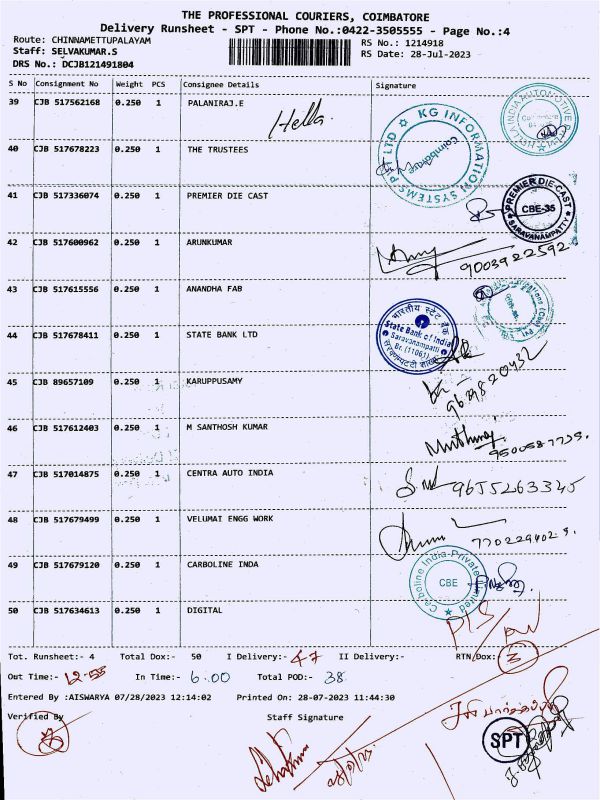 THE PROFESSIONAL COURIERS, COIMBATORE
Delivery Runsheet - SPT - Phone No.:0422-3505555 - Page No.:4
Route: CHINNAMETTUPALAYAM
RS No.: 1214918
Staff: SELVAKUMAR.S
RS Date: 28-Jul-2023
DRS No.: DCJB121491804
S No Consignment No Weight PCS Consignee Details Signature
39 CJB 517562168 0.250 1 PALANIRAJ.E Hella
KG INFORMATION SYSTEMS PVT LTD Coimbatore
HELLA INDIA AUTOMOTIVE
40 CJB 517678223 0.250 1 THE TRUSTEES
41 CJB 517336074 0.250 1 PREMIER DIE CAST
PREMIER DIE-CAST CBE-35 SARAVANAMPATTY
42 CJB 517600962 0.250 1 ARUNKUMAR
9003922592
43 CJB 517615556 0.250 1 ANANDHA FAB
44 CJB 517678411 0.250 1 STATE BANK LTD
भारतीय स्टेट बैंक
State Bank of India
Saravanampatti
Br. (11061)
45 CJB 89657109 0.250 1 KARUPPUSAMY
46 CJB 517612403 0.250 1 M SANTHOSH KUMAR
47 CJB 517014875 0.250 1 CENTRA AUTO INDIA 9655263345
48 CJB 517679499 0.250 1 VELUMAI ENGG WORK
49 CJB 517679120 0.250 1 CARBOLINE INDA
Carboline India Private Limited CBE
50 CJB 517634613 0.250 1 DIGITAL
Tot. Runsheet:- 4 Total Dox:- 50 I Delivery:- 47 II Delivery:- RTN Dox: 3
Out Time:- 12-55 In Time:- 6.00 Total POD:- 38
Entered By :AISWARYA 07/28/2023 12:14:02 Printed On: 28-07-2023 11:44:30
Verified By Staff Signature
SPT